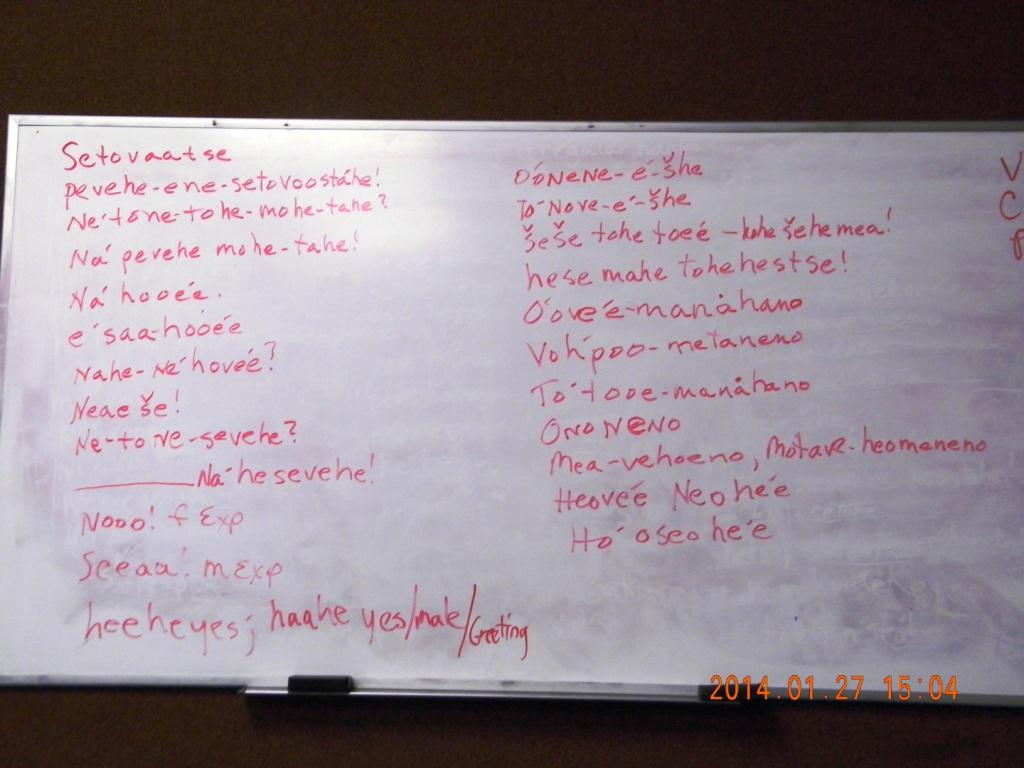 Setovaatse
pevehe-ene-setovoostáhe!
Ne-tóne-tohe-mohe-tahe?
Ná pevehe mohe-tahe!
Ná hooéé.
e'saa-hooéé
Nahe-Né hoveé?
Neae še!
Ne-to ve-sevehe?
________ Ná hesevehe!
Nooo! f Exp
Seeaa! m Exp
heehe yes; haahe yes/male/Greeting
OóNeNe-é-šhe
Tó Nove-é-šhe
šeše tohe toeé - kohe šehe mea!
hese mahe tohe hestse!
Óoveé-manàhano
Voh'poo-metaneno
Tó'tooe-manåhano
OnoNeNo
Mea-vehoeno, Motave-heomaneno
Heoveé Neohéé
Hó'oseohéé
V
C
2014.01.27 15:04